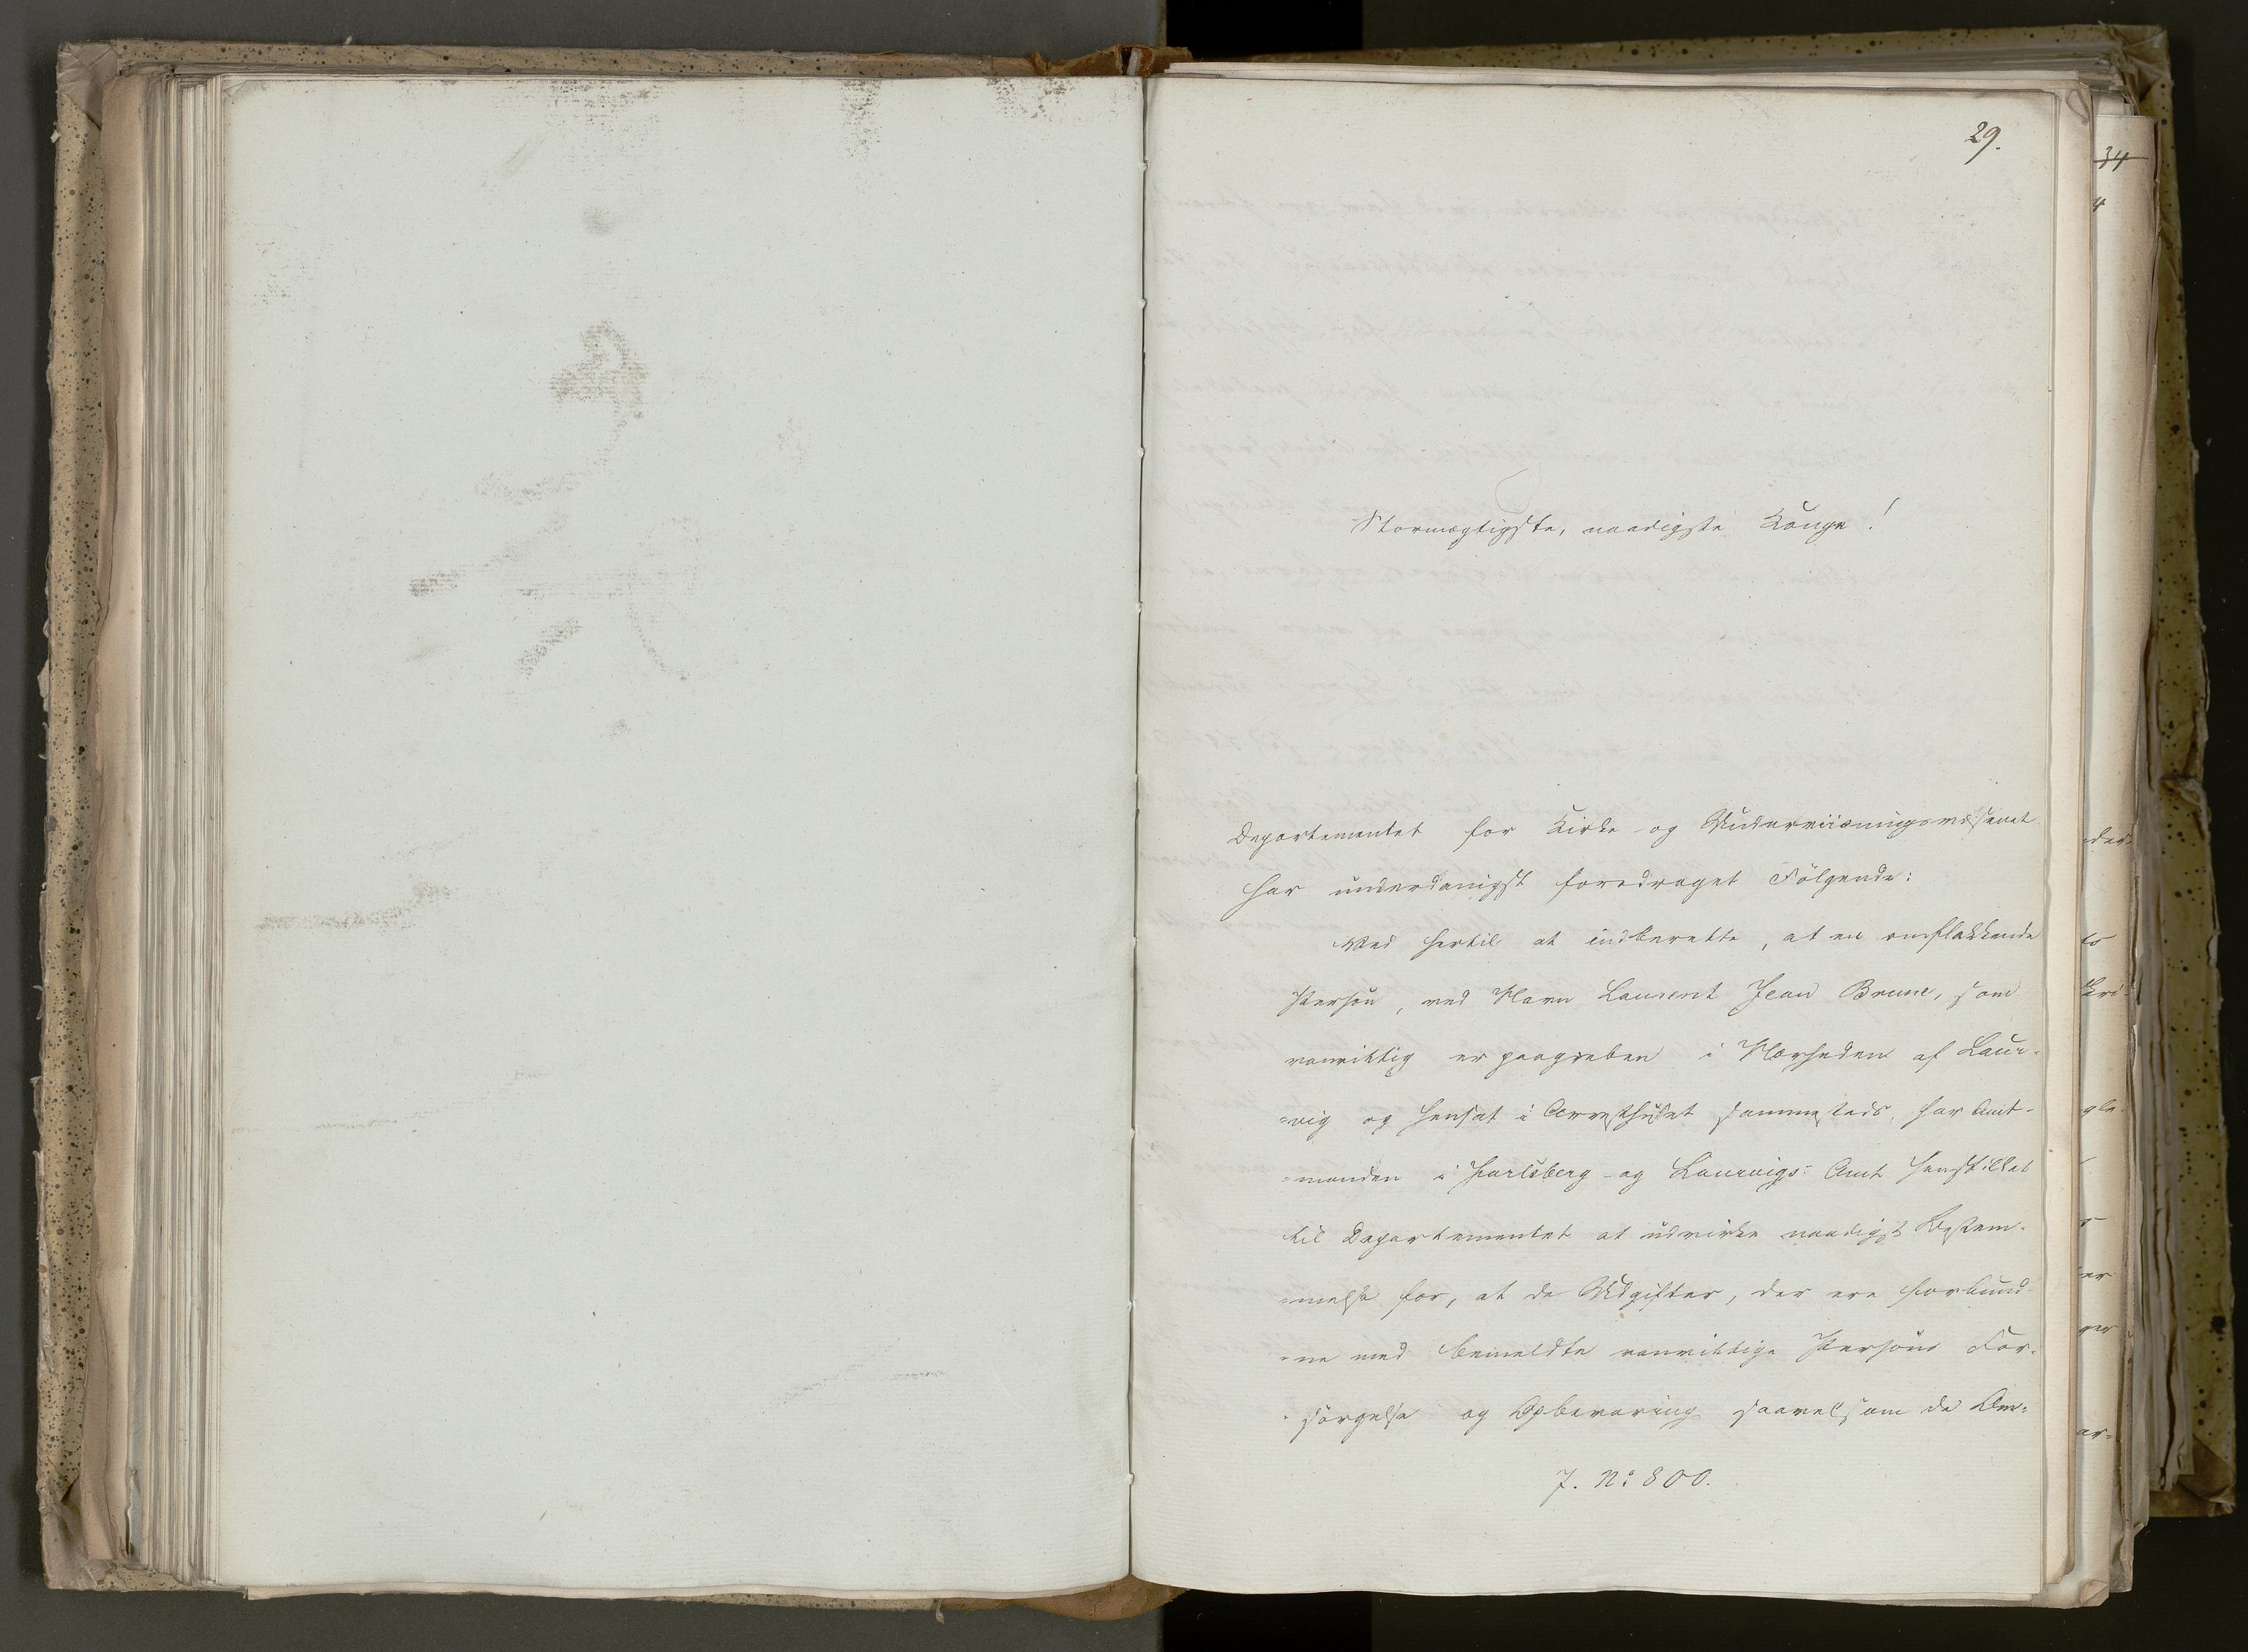 29.
Stormægtigste, naadigste Konge!
Departementet for Kirke- og Underviisningsvæsenet
har underdanigst foredraget Følgende:
Ved hertil at indberette, at en omflakkende
Person, ved Navn Laurent Jean Brune, som
vanvittig er paagreben i Nærheden af Laur-
=vig og hensat i Arresthuset sammesteds, har Amt-
=manden i Jarlsberg- og Laurvigs- Amt henstillet
til Departementet at udvirke naadigst Bestem-
=melse for, at de Udgifter, der ere forbund-
=ne med bemeldte vanvittige Persons For-
-sørgelse og Opbevaring saavelsom de Om=
J. No 800.
34
4